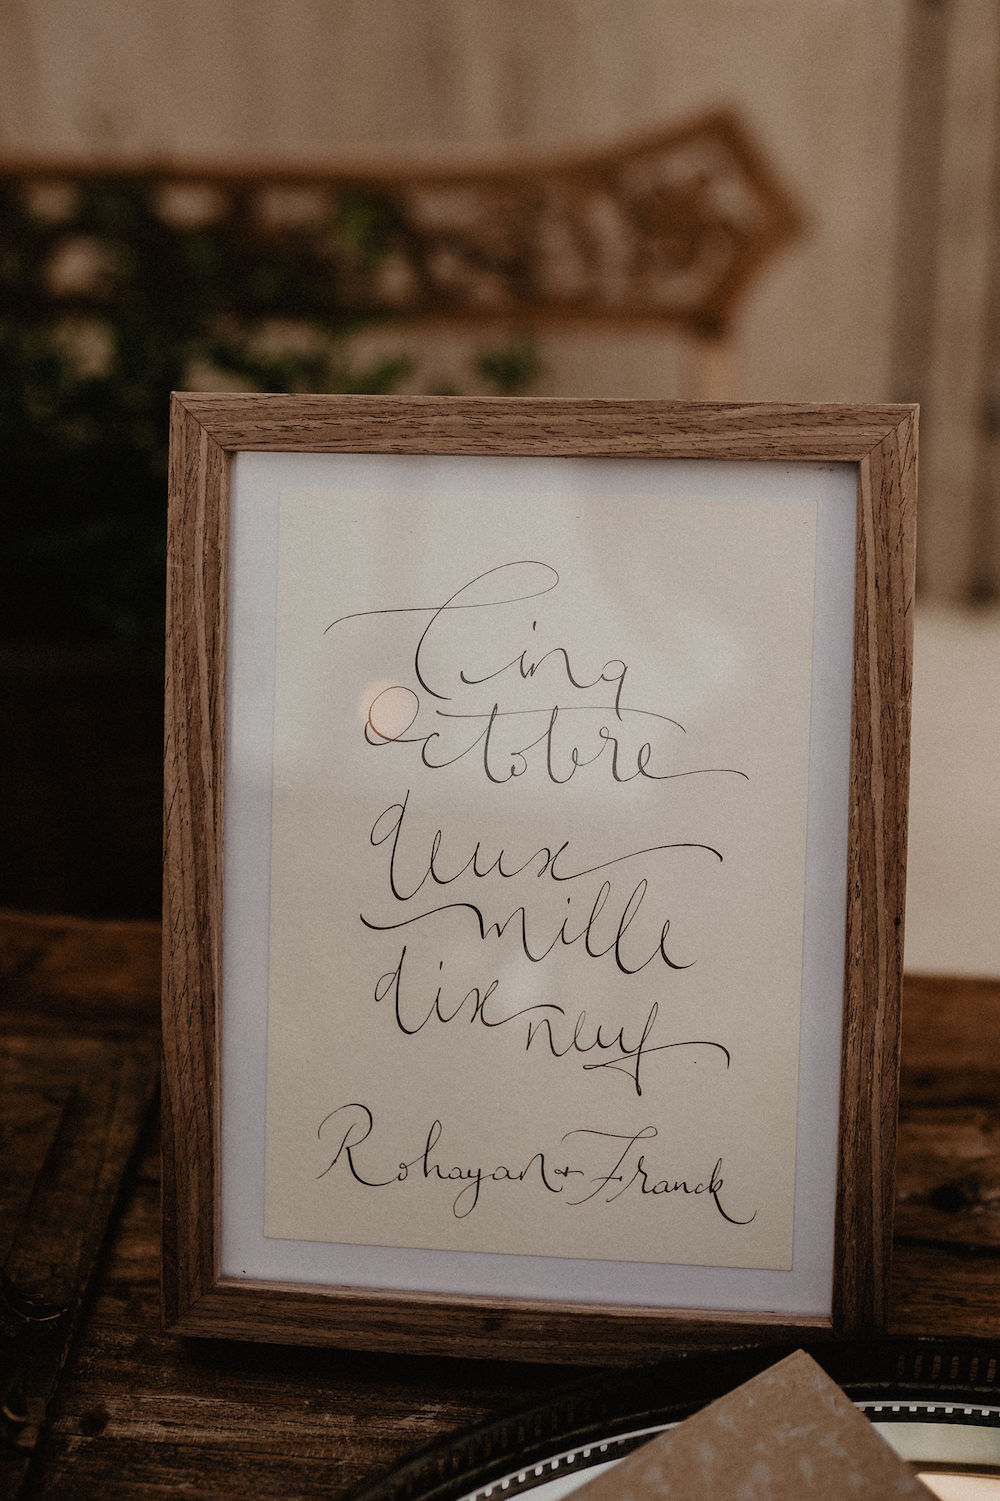 Cinq
Octobre
deux
mille
dix neuf
Rohayan + Franck